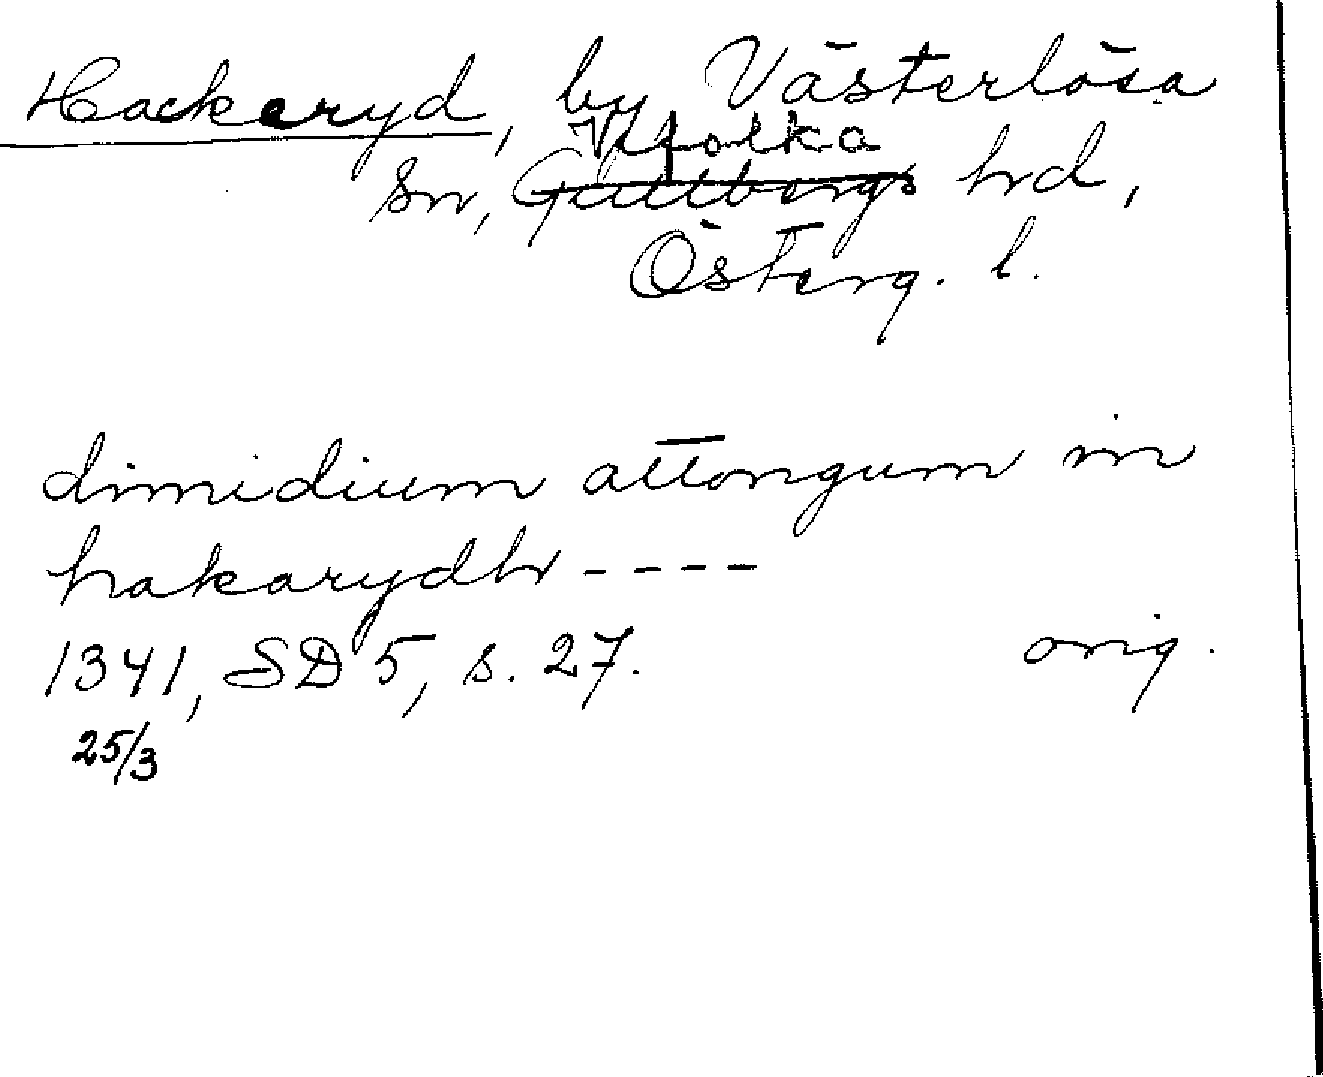 Hackeryd, by, Västerlösa
Vifolka
sn, Gullbergs hd,
Österg. l.
dimidium attongum in
hakarydh ----
1341, SD 5, s. 27. orig.
25/3